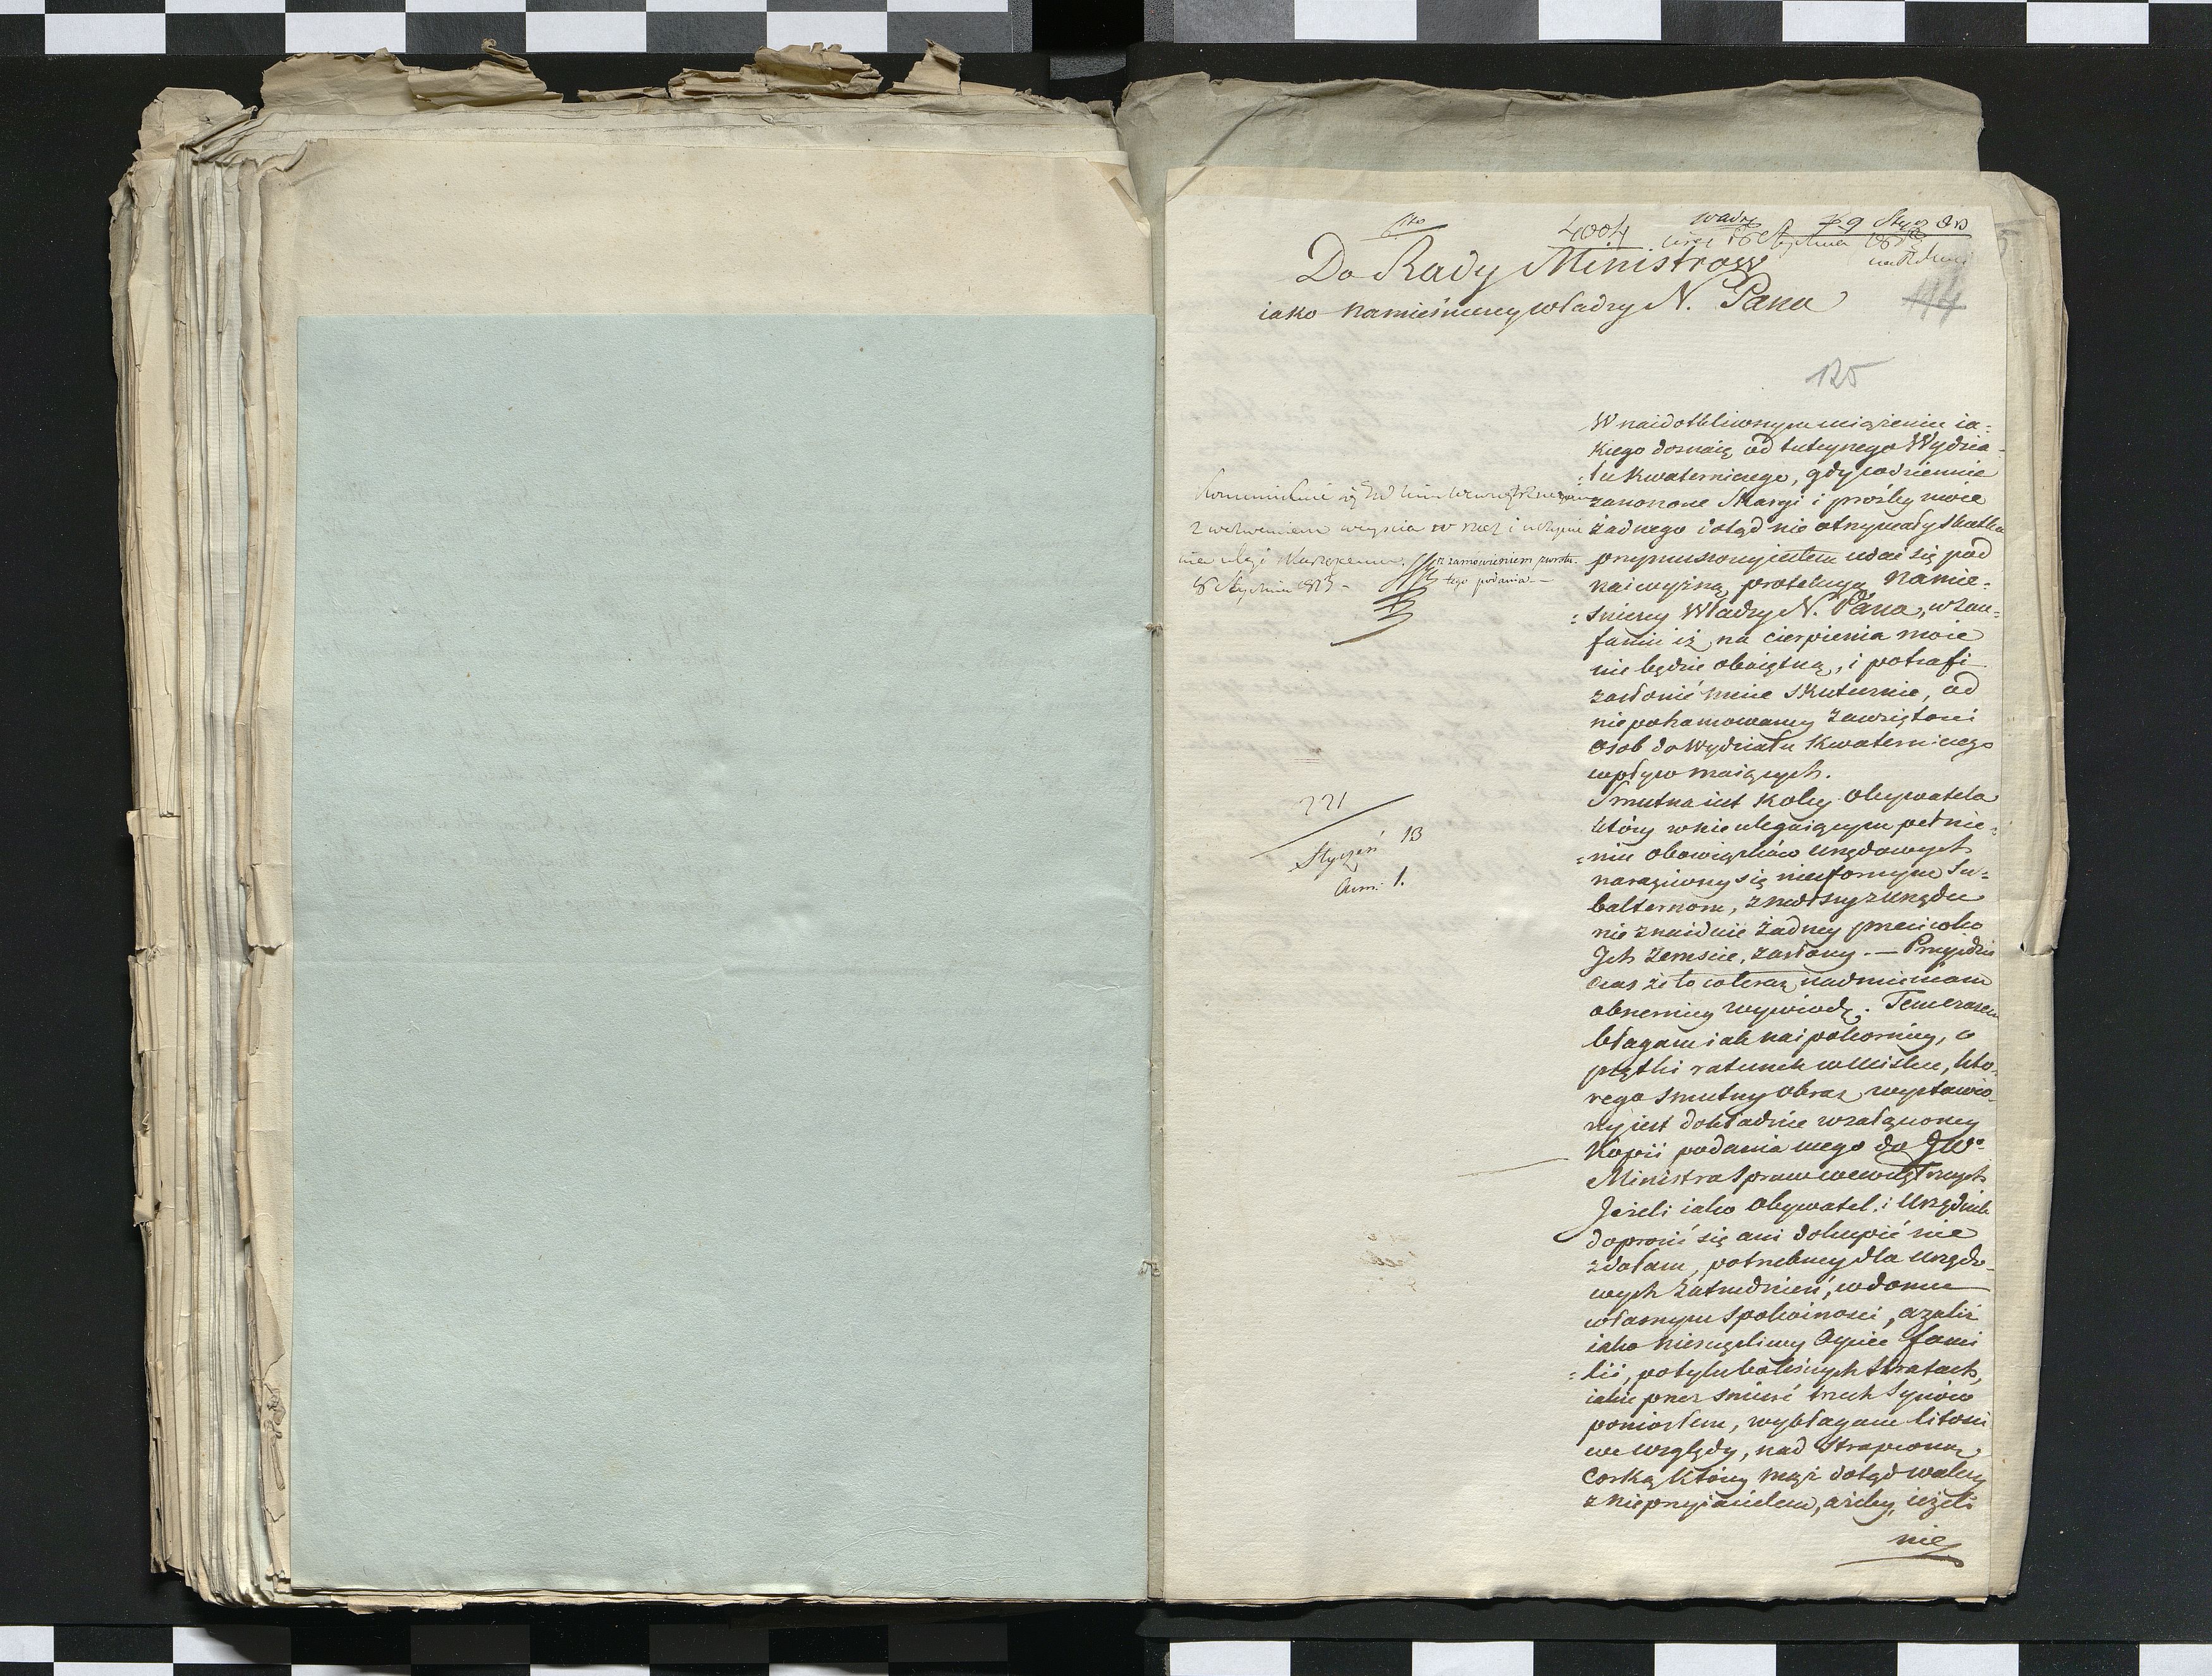 4004
79 Stycz 813
Do Rady Ministrow
iako namiesniczey władzy N. Pana
114
125
W naidotkliwszym uciążeniu ia-
kiego doznaię od tuteyszego Wydzia-
:łu Kwaterniczego, gdy codziennie
zanoszone Skargi i prośby moie
żadnego dotąd nie otrzymały skutku
przymuszony iestem udać się pod
naiwyższą protekcyą Namie-
:sniczey Władzy N. Pana, w zau-
faniu iż na cierpienia moie
nie będzie oboiętną, i potrafi
zasłonić mnie skutecznie, od
niepohamowaney zawziętości
osob do Wydziału Kwaterniczego
wpływ maiących.
Smutna iest koley Obywatela
który w nieulegaiącym pełnie-
:niu obowiązków urzędowych
naraziwszy się niesfornym Su-
balternom, zszedłszy z urzędu
nie znaiduie żadney przeciwko
Ich zemście, zasłony. — Przyidzie
czas że to co teraz nadmieniam
obszerniey wywiodę. Tymczasem
błagam iak naipokorniey, o
prętki ratunek w ucisku, któ-
rego smutny obraz wystawio-
ny iest dokładnie w załączoney
Kopii podania mego do JW°
Ministra Spraw wewnętrznych
Jeżeli iako Obywatel i Urzędnik
doprosić się ani dokupić nie
zdołam, potrzebney dla urzędo-
wych zatrudnień, w domu
własnym spokoiności, azaliż
iako nieszczęśliwy Oyciec fami
:lii, po tylu boleśnych stratach,
iakie przez śmierć trzech Synów
poniosłem, wybłagam litości
we względy, nad strapioną
Corką którey mąż dotąd walczy
z nieprzyiacielem, ażeby, ieżeli
nie
z wezwaniem weyścia w rzecz i
z zamówieniem zwrotu
tego podania —
8 Stycznia 1813 —
221
Styczeń 13
Num: 1.